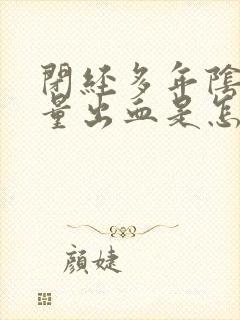 閉經多年陰
量出血是怎
顏婕